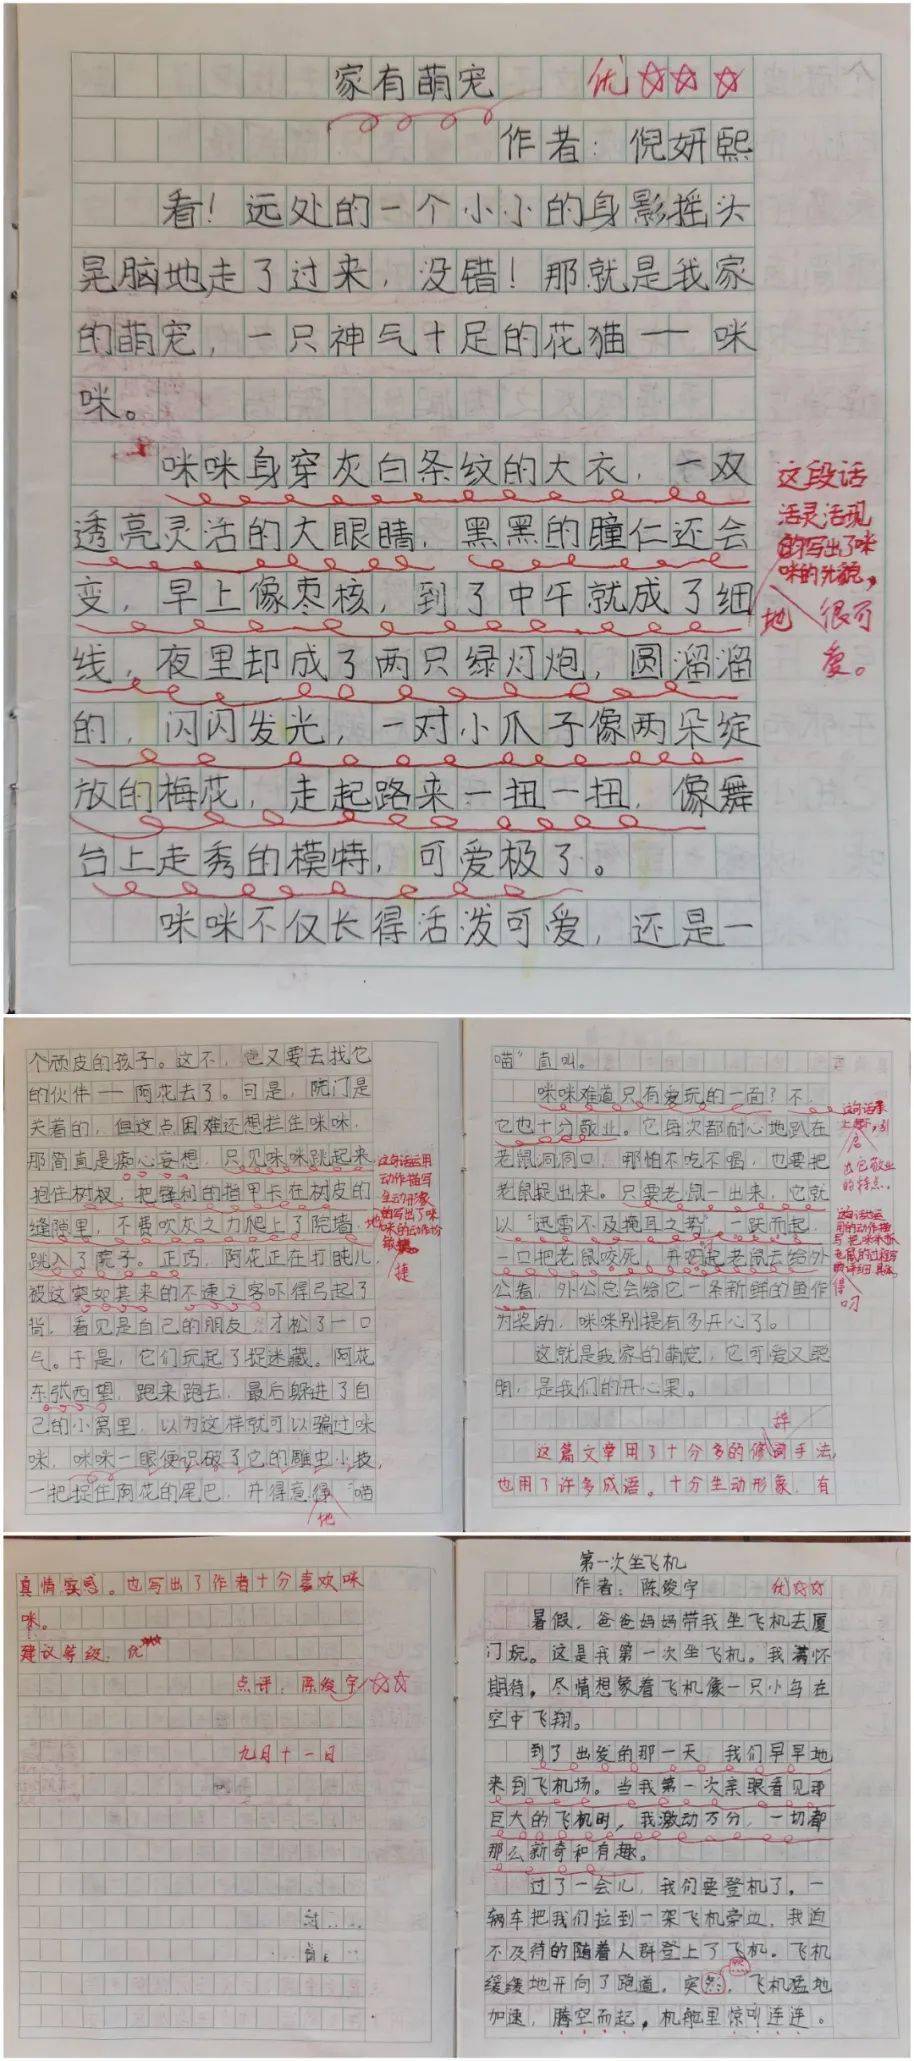 家有萌宠 优
作者：倪妍熙
看！远处的一个小小的身影摇头
晃脑地走了过来，没错！那就是我家
的萌宠，一只神气十足的花猫——咪
咪。
咪咪身穿灰白条纹的大衣，一双
透亮灵活的大眼睛，黑黑的瞳仁还会
变，早上像枣核，到了中午就成了细
线，夜里却成了两只绿灯炮，圆溜溜
的，闪闪发光，一对小爪子像两朵绽
放的梅花，走起路来一扭一扭，像舞
台上走秀的模特，可爱极了。
咪咪不仅长得活泼可爱，还是一
这段话
活灵活现
的写出了咪
咪的外貌，
地 很可
爱。
个顽皮的孩子。这不，它又要去找它
的伙伴——阿花去了。可是，院门是
关着的，但这点困难还想拦住咪咪，
那简直是痴心妄想，只见咪咪跳起来
抱住树杈，把锋利的指甲卡在树皮的
缝隙里，不费吹灰之力爬上了院墙，
跳入了院子。正巧，阿花正在打盹儿，
被这突如其来的不速之客吓得弓起了
背，看见是自己的朋友，才松了一口
气。于是，它们玩起了捉迷藏。阿花
东张西望，跑来跑去，最后躲进了自
己的小窝里，以为这样就可以骗过咪
咪，咪咪一眼便识破了它的雕虫小技，
一把捉住阿花的尾巴，并得意得“喵
地
这句话运用
动作描写
生动形象
的写出了咪
咪的动作份
敏
地
捷
喵”直叫。
咪咪难道只有爱玩的一面？不，
它也十分敬业。它每次都耐心地趴在
老鼠洞洞口，哪怕不吃不喝，也要把
老鼠捉出来。只要老鼠一出来，它就
以“迅雷不及掩耳之势”，一跃而起，
一口把老鼠咬死，并叼起老鼠去给外
公看，外公总会给它一条新鲜的鱼作
为奖励，咪咪别提有多开心了。
这就是我家的萌宠，它可爱又聪
明，是我们的开心果。
这句话承
上启下，引
出它敬业
的特点。
得
叼
辞
这篇文章用了十分多的修词手法，
也用了许多成语。十分生动形象，有
真情实感。也写出了作者十分喜欢咪
咪。
建议等级：优
点评：陈俊宇
九月十一日
第一次坐飞机
作者：陈俊宇 优
暑假，爸爸妈妈带我坐飞机去厦
门玩。这是我第一次坐飞机。我满怀
期待，尽情想象着飞机像一只小鸟在
空中飞翔。
到了出发的那一天，我们早早地
来到飞机场。当我第一次亲眼看见那
巨大的飞机时，我激动万分，一切都
那么新奇和有趣。
过了一会儿，我们要登机了，一
辆车把我们拉到一架飞机旁边，我迫
不及待的随着人群登上了飞机。飞机
缓缓地开向了跑道，突然，飞机猛地
加速，腾空而起，机舱里惊叫连连。